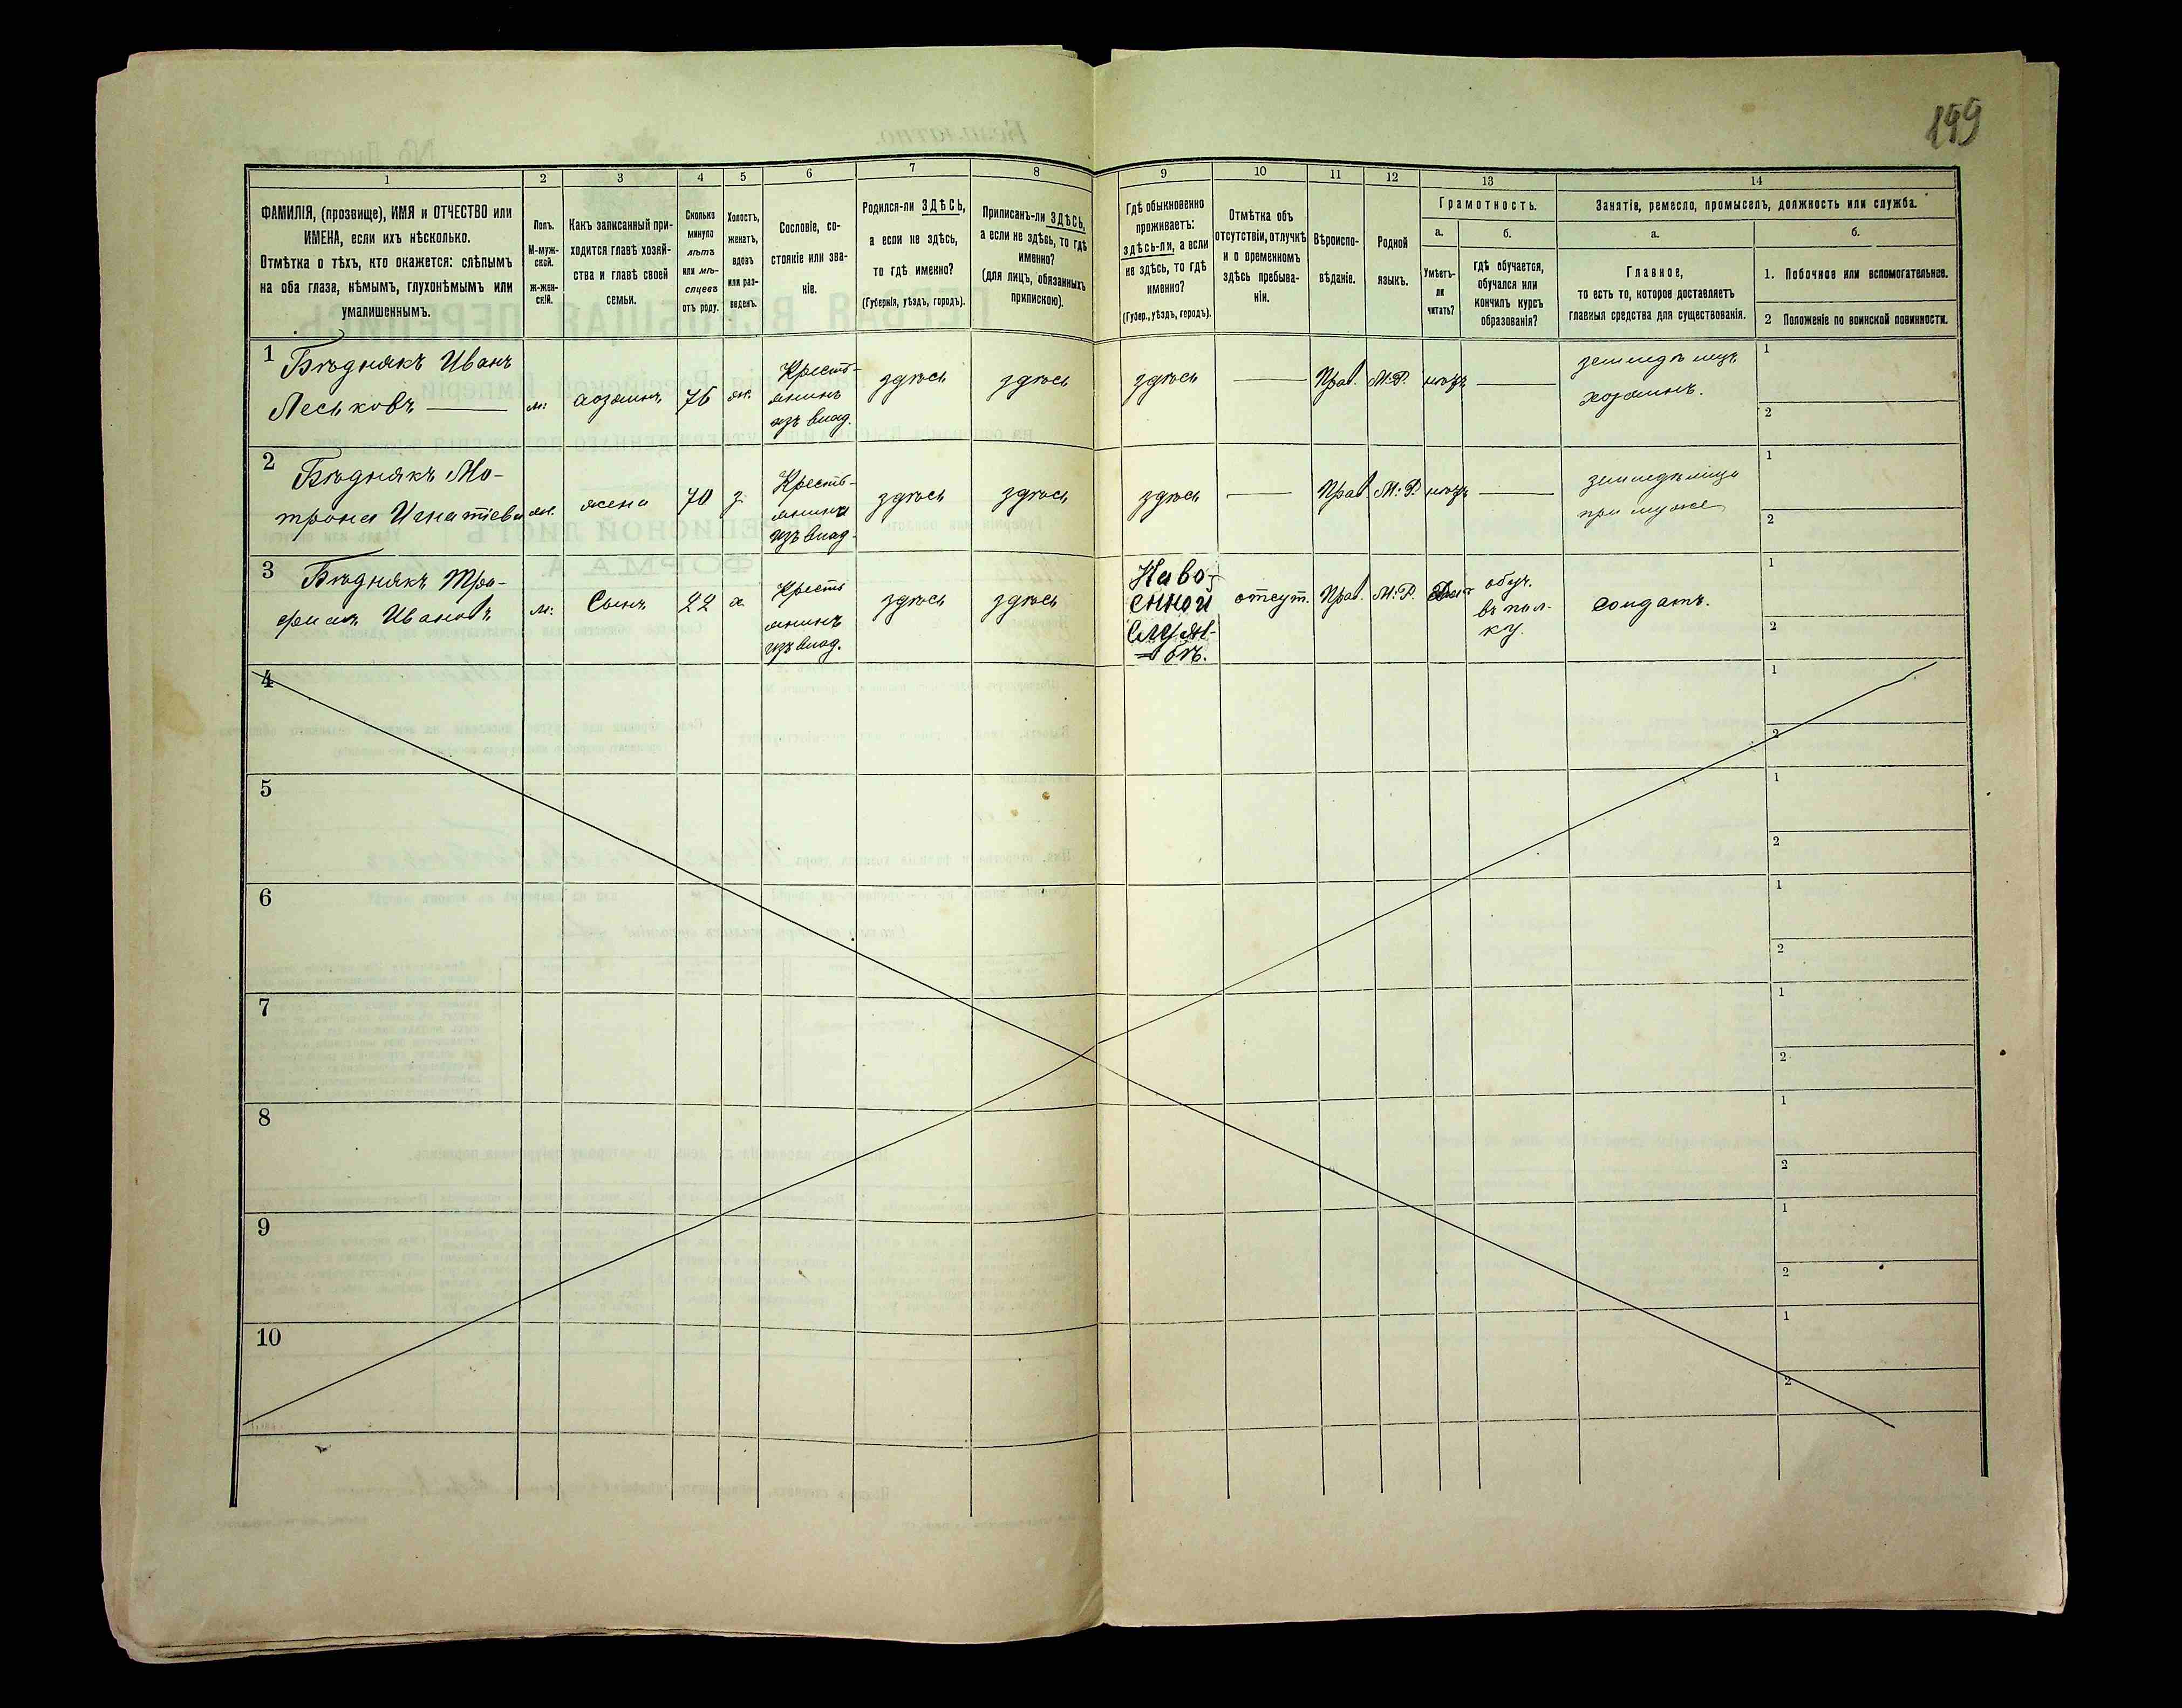 199
1
2
3
4
5
6
7
8
9
10
11
12
13
14
ФАМИЛІЯ, (прозвище), ИМЯ и ОТЧЕСТВО или
ИМЕНА, если ихъ нѣсколько.
Отмѣтка о тѣхъ, кто окажется: слѣпымъ
на оба глаза, нѣмымъ, глухонѣмымъ или
умалишеннымъ.
Полъ.
М-муж-
ской.
Ж-жен-
скій.
Какъ записанный при-
ходится главѣ хозяй-
ства и главѣ своей
семьи.
Сколько
минуло
лѣтъ
или мѣ-
сяцевъ
отъ роду.
Холостъ,
женатъ,
вдовъ
или раз-
веденъ.
Сословіе, со-
стояніе или зва-
ніе.
Родился-ли ЗДѢСЬ,
а если не здѣсь,
то гдѣ именно?
(Губернія, уѣздъ, городъ).
Приписанъ-ли ЗДѢСЬ,
а если не здѣсь, то гдѣ
именно?
(для лицъ, обязанныхъ
припискою).
Гдѣ обыкновенно
проживаетъ:
здѣсь-ли, а если
не здѣсь, то гдѣ
именно?
(Губер., уѣздъ, городъ).
Отмѣтка объ
отсутствіи, отлучкѣ
и о временномъ
здѣсь пребыва-
ніи.
Вѣроиспо-
вѣданіе.
Родной
языкъ.
Грамотность.
а.
Умѣетъ-
ли
читать?
б.
гдѣ обучается,
обучался или
кончилъ курсъ
образованія?
Занятіе, ремесло, промыселъ, должность или служба.
а.
Главное,
то есть то, которое доставляетъ
главныя средства для существованія.
б.
1. Побочное или вспомогательное.
2 Положеніе по воинской повинности.
1 Бѣднякъ Иванъ
Леськовъ
м:
хозяинъ
76
ж.
Кресть-
янинъ
изъ влад.
здѣсь
здѣсь
здѣсь
Прав.
М.Р.
нѣтъ
земледѣлецъ
хозяинъ.
1
2
2 Бѣднякъ Ма-
трона Игнатіева
ж.
жена
70
з.
Кресть-
янинъ
изъ влад.
здѣсь
здѣсь
здѣсь
Прав.
М.Р.
нѣтъ
земледѣлица
при мужѣ
1
2
3 Бѣднякъ Тро-
фимъ Ивановъ
м:
Сынъ
22
х.
Кресть
янинъ
изъ влад.
здѣсь
здѣсь
На во-
енной
служ-
бѣ.
отсут.
Прав.
М.Р.
обуч.
въ пол-
ку.
солдатъ.
1
2
4
1
2
5
1
2
6
1
2
7
1
2
8
1
2
9
1
2
10
1
2